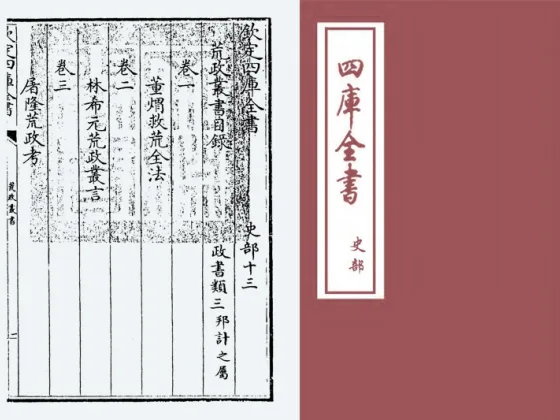 欽定四庫全書 史部十三
荒政叢書目錄 政書類三 邦計之屬
卷一
董煟救荒全法
卷二
林希元荒政叢言
卷三
屠隆荒政考
欽定四庫全書
荒政叢書
一
四庫全書
史部